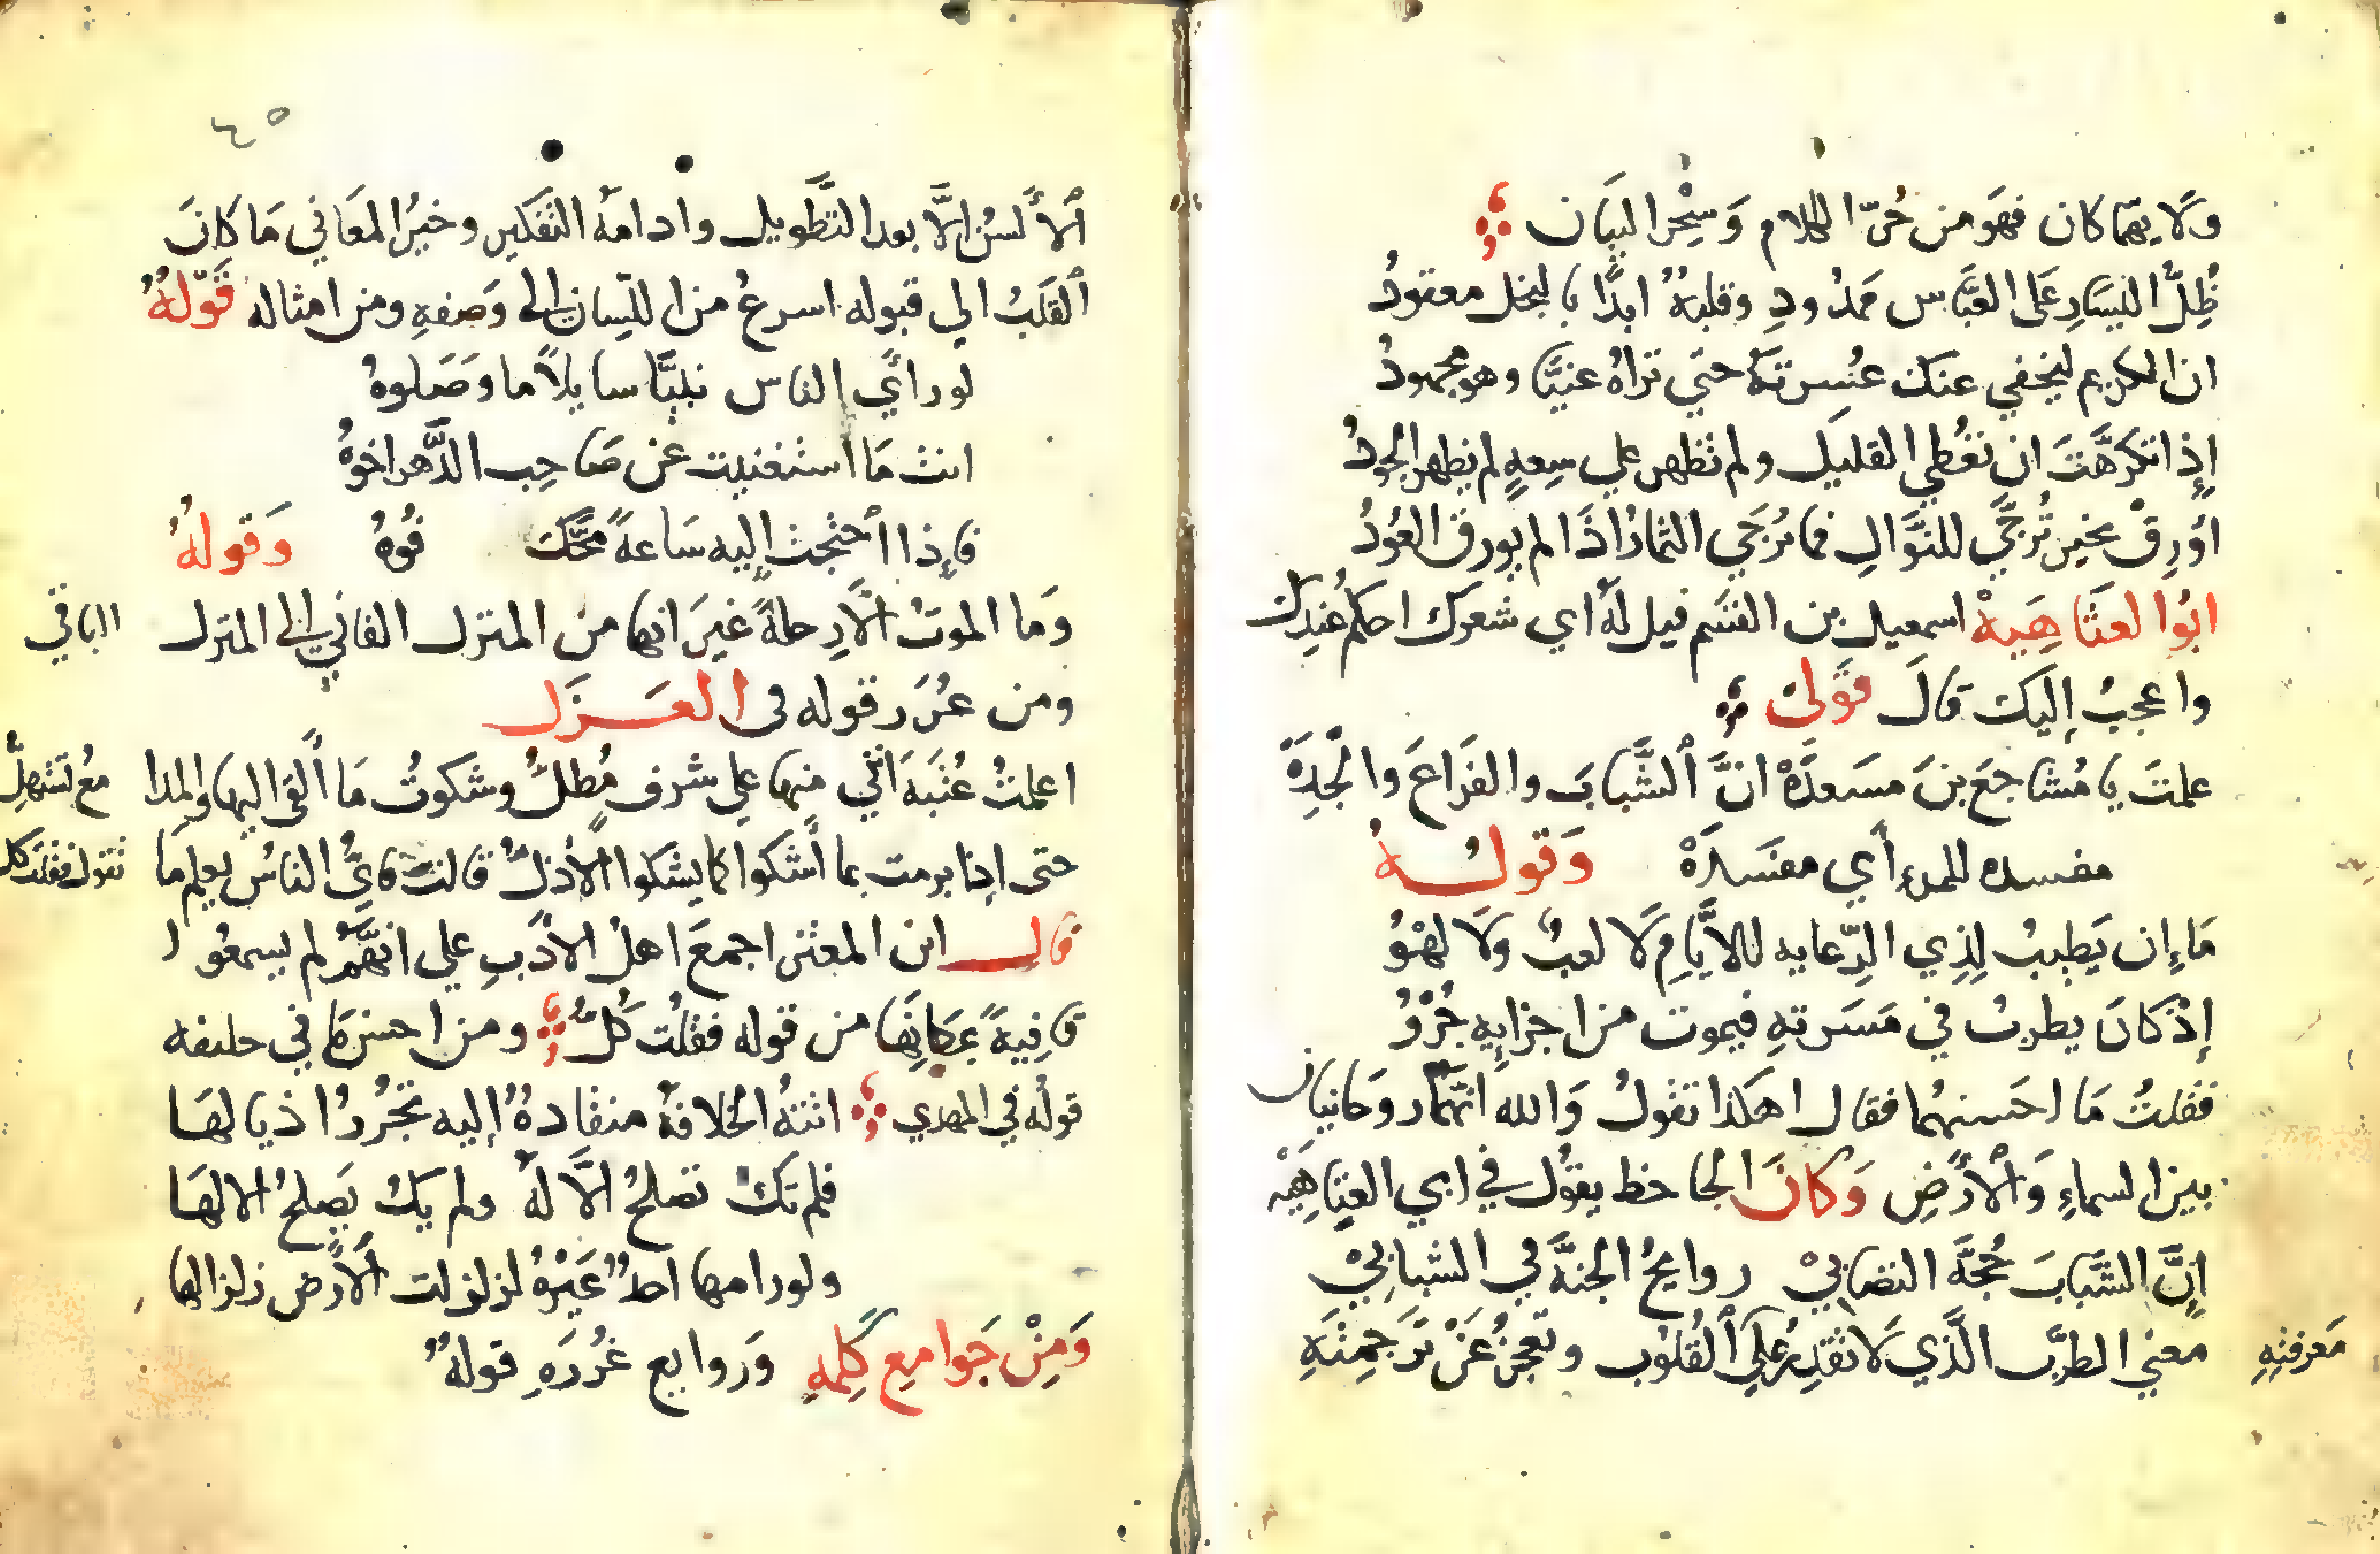 ولايهما كان فهو من حُرّ الكلام وَسِحْر البيَان
ظِلُّ اليسَارِ عَلى العبَّاس ممدُودِ وقلبهُ ابدًا بالبخل معقودُ
ان الكريم ليخفي عنك عُسرتَهُ حتي تراهُ غنيًّا وهو مجهودُ
إِذا تكرَّهَتَ ان تعُطي القليَل ولم تظهر علي سِعهٍ لم يظهر الجودُ
اوُرِقْ بخيرٍ تُرَجَّي للنَّوَالِ فما تُرَجَي الثمارُ اذَا لم يورق العُودُ
ابُوا لعتَاهِيهْ اسمعيل بن القسَم قيل لهُ اي شعرك احكمُ عندك
واعجبُ إليَك قالَ قوَلى
علمتَ يا مُشاجعَ بنَ مسَعدَهْ انَّ ٱلشَّبابَ والفرَاغَ والْجِدَهْ
مفسده للمرءِ أَي مفسَدَهْ وَقولـــهُ
مَاءِان يَطيبُ لِذِي الرِّعايه للاَّيامِ لَا لعبٌ ولَا لهْوُ
إِذْ كانَ يطربُ في مَسَرتهِ فيموت من اجزايِهِ جُزْوُ
فقلتُ مَا احَسنهُما فقال اهكذا تقولُ وَالله انهَّمار وحَانيان
بين السماءِ وَاْلأرَضِ وَكانَ الجاحظ يقوُل في ابي العتِاهَيْه
إنَّ الشَّبابَ حُجَّهَ التصَابيْ روايحُ الجنهَّ في الشبابيْ
معني الطرَّب الَّذي لَا تقدِرُ علي ٱلقُلوُب وتعجزُ عَنْ ترَجمِتَهِ
مَعرفتهِ
٤٥
ٱلأَلسُن إلَّا بعد التَّطويل وادامَهُ التفَكير وخيرُ المعَاني مَا كانَ
ٱلقَلبُ الي قبوله اسرعُ من اللسِّان إلى وَصفهِ ومن امثاله قوَلهُ
لو رَأَي الناس نبيَّا سايلاً ما وَصَلوهُ
انت مَا استغنيت عن صَاحِب الدَّهر اخوُهُ
فإِذا احتجت إِليه سَاعهً مجَّك فُوهُ وَقولهُ
وَما الموتُ الَّا رِحلهً غيرَ انها من المنزل الفاني إلى المنزل الباقي
ومن غُرَر قوله فى الغـــزَل
اعلمتُ عُتبَهَ انَّني منها علي شرف مُطلٌّ وشكوتُ مَا أَلقى اليها والمدا مع تَستهلّ
حتى إذا برمت بما أشكوا كما يشكوا الأذلُّ قالت فايُّ الناسُ يعلم مَا تقول فقلت كل
قالـــ ابن المعتز اجمعَ اهل الأدَبِ علي انهَّمْ لم يسمعُوا
قافِيهً بمكانِها من قوله فقلُت كُلُّ ومن احسن مَا في حليفه
قولُه في المهدي اتتهُ الخلافهُ منقادهً إليه تجُرُرُ اذيالهَا
فلم تكُ تصلحُ الاَّ لهُ ولم يكُ يَصلحُ الا لهَا
ولو رامها احدٌ غيَرْهُ لزلزلت الأرَض زلزالها
وَمِنْ جَوامعِ كَلِمهِ وَروايع غُرُرَهِ قولهُ